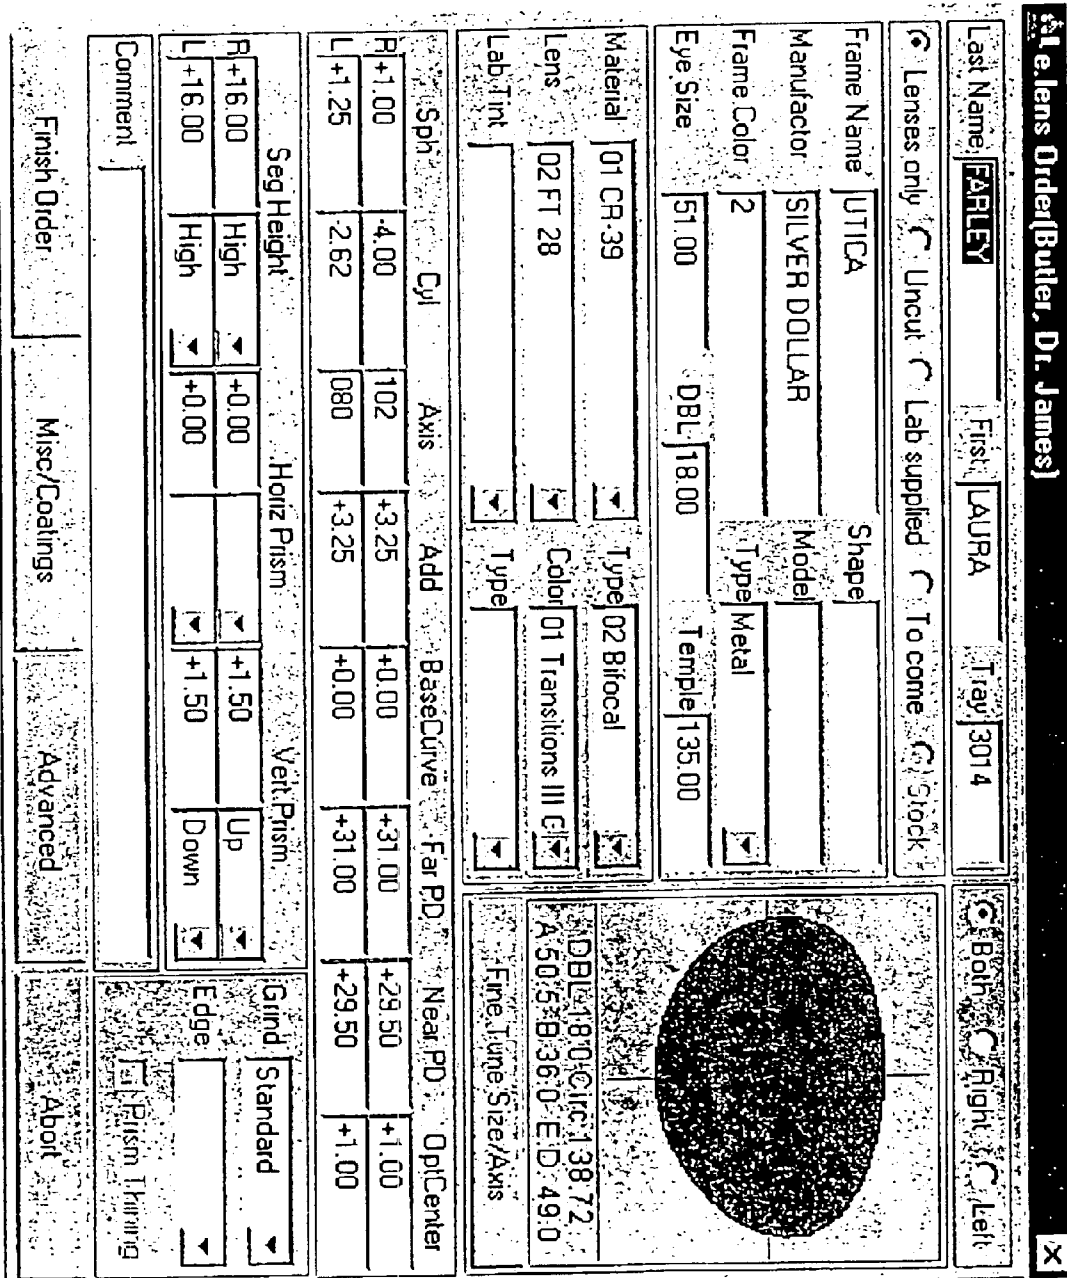 e.lens Order(Butler, Dr. James)
Last Name FARLEY First LAURA Tray 3014 Both Right Left
Lenses only Uncut Lab supplied To come Stock
Frame Name UTICA Shape
Manufactor SILVER DOLLAR Model
Frame Color 2 Type Metal
Eye Size 51.00 DBL 18.00 Temple 135.00
DBL 18.0 Circ 138.72
A 50.5 B 36.0 ED 49.0
Fine Tune Size/Axis
Material 01 CR-39 Type 02 Bifocal
Lens 02 FT 28 Color 01 Transitions III G
Lab Tint Type
Sph Cyl Axis Add BaseCurve Far PD Near PD OptCenter
R +1.00 -4.00 102 +3.25 +0.00 +31.00 +29.50 +1.00
L +1.25 -2.62 080 +3.25 +0.00 +31.00 +29.50 +1.00
Seg Height Horiz Prism Vert Prism
R +16.00 High +0.00 +1.50 Up
L +16.00 High +0.00 +1.50 Down
Grind Standard
Edge
Prism Thining
Comment
Finish Order Misc/Coatings Advanced Abort